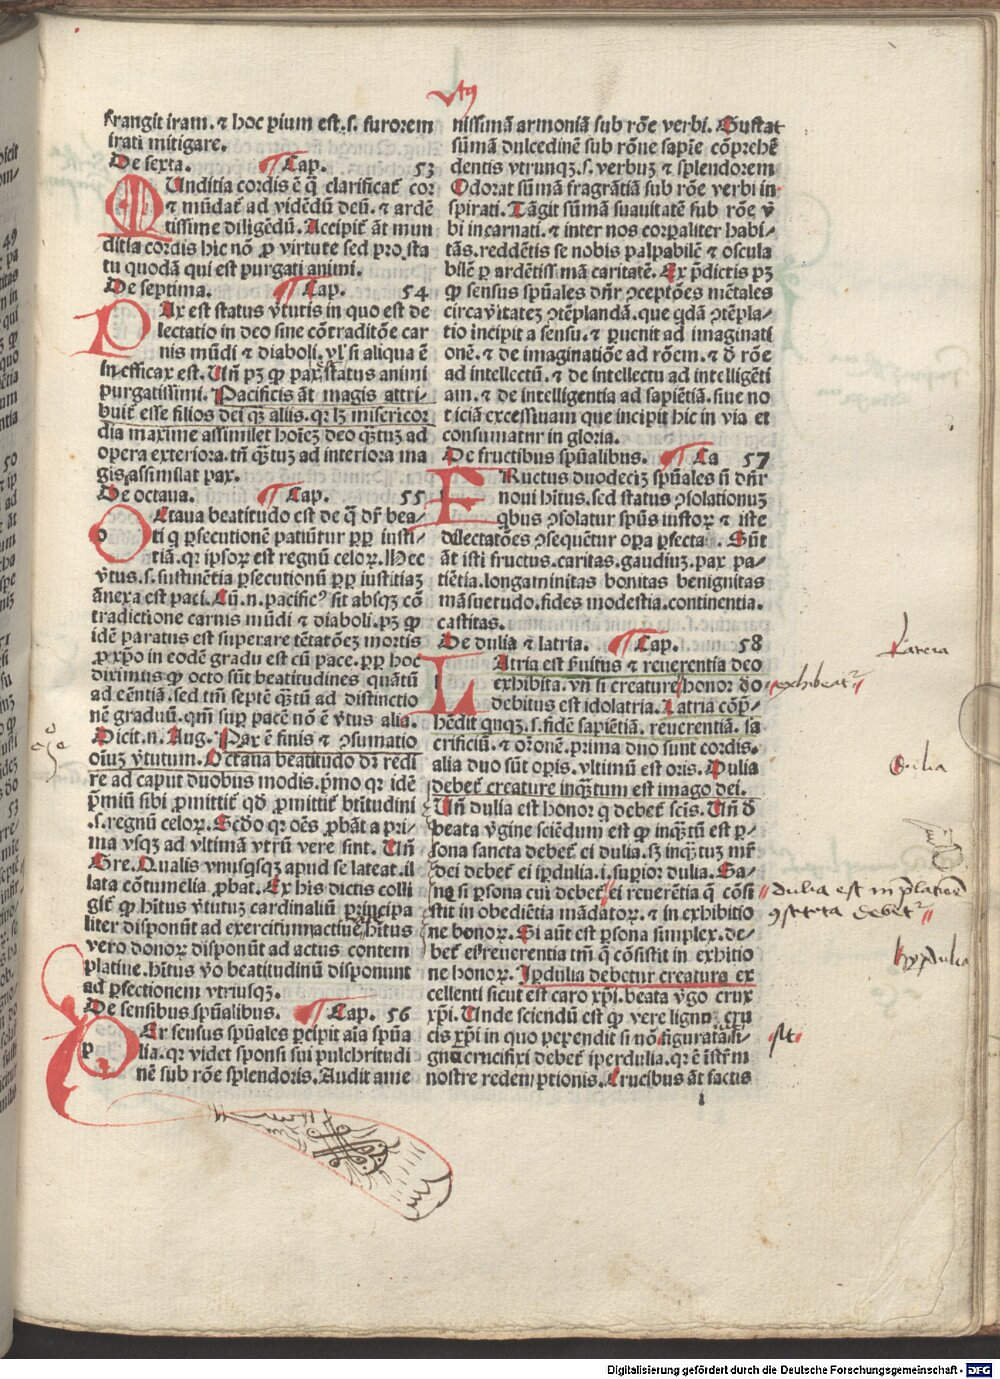 vtꝰ
frangit iram. ⁊ hoc pium est .s. furorem
irati mitigare.
De sexta. ¶ Cap. 53
MUnditia cordis ē q̄ clarificat̄ cor
⁊ mūdat̄ ad vidēdū deū. ⁊ ardē
tissime diligēdū. Accipit̄ āt mun
ditia cordis hic nō ꝓ virtute sed pro sta
tu quodā qui est purgati animi.
De septima. ¶ Cap. 54
PAx est status v̄tutis in quo est de
lectatio in deo sine cōtraditōe car
nis mūdi ⁊ diaboli. vl̓ si aliqua ē
inefficax est. Uñ pꝫ ꝙ pax est status animi
purgatissimi. Pacificis āt magis attri-
buit̄ esse filios dei qꝫ̄ aliis. qꝛ lꝫ misericor
dia maxime assimilet hoīeꝫ deo qꝫ̄tuꝫ ad
opera exteriora. tn̄ qꝫ̄tuꝫ ad interiora ma
gis assimilat pax.
De octaua. ¶ Cap. 55
OCtaua beatitudo est de q̄ dr̄ bea-
ti q ꝑsecutionē patiūtur ꝓp̄ iusti-
tiā. qꝛ ipsoꝝ est regnū celoꝝ. Hec
v̄tus .s. sustinētia ꝑsecutionū ꝓp̄ iustitiaꝫ
ānexa est paci. Cū .n. pacificꝰ sit absqꝫ cō
tradictione carnis mūdi ⁊ diaboli. pꝫ ꝙ
idē paratus est superare tētatōeꝫ mortis
ꝓ xp̄o in eodē gradu est cū pace. ꝓp̄ hoc
diximus ꝙ octo sūt beatitudines quātū
ad eēntiā. sed tm̄ septē qꝫ̄tū ad distinctio
nē graduū. qm̄ suꝑ pacē nō ē v̄tus alia.
Dicit .n. Aug. Pax ē finis ⁊ ꝯsumatio
oīuꝫ v̄tutum. Octaua beatitudo dr̄ redi
re ad caput duobus modis. p̄mo qꝛ idē
p̄miū sibi ꝓmittit̄ qd̄ ꝓmittit̄ btītudini
.s. regnū celoꝝ. Scd̄o qꝛ oēs ꝓbāt a pri-
ma vsqꝫ ad vltimā vtrū vere sint. Uñ
Gre. Qualis vnusqsqꝫ apud se lateat. il
lata cōtumelia ꝓbat. Ex his dictis colli
git̄ ꝙ hītus v̄tutuꝫ cardinaliū principa
liter disponūt ad exercitium actiue. hītus
vero donoꝝ disponūt ad actus contem
platiue. hītus v̄o beatitudinū disponunt
ad ꝑfectionem vtriusqꝫ.
De sensibus spūalibus. ¶ Cap. 56
PEr sensus spūales ꝑcipit aīa spūa
lia. qꝛ videt sponsi sui pulchritudi
nē sub rōe splendoris. Audit ame
nissimā armoniā sub rōe verbi. Gustat
sūmā dulcedinē sub rōne sapīe cōprehē
dentis vtrunqꝫ .s. verbuꝫ ⁊ splendorem
Odorat sūmā fragrātiā sub rōe verbi in-
spirati. Tāgit sūmā suauitatē sub rōe v̄
bi incarnati. ⁊ inter nos corꝑaliter habi-
tās. reddētis se nobis palpabilē ⁊ oscula
bilē ꝑ ardētissimā caritatē. Ex p̄dictis pꝫ
ꝙ sensus spūales dn̄r ꝯceptōes mētales
circa v̄itateꝫ ꝯtēplandā. que qdā ꝯtēpla-
tio incipit a sensu. ⁊ ꝑuenit ad imaginati
onē. ⁊ de imaginatiōe ad rōem. ⁊ d̄ rōe
ad intellectū. ⁊ de intellectu ad intelligēti
am. ⁊ de intelligentia ad sapiētiā. siue no
ticiā excessiuam que incipit hic in via et
consumatur in gloria.
De fructibus spūalibus. ¶ Ca 57
FRuctus duodeciꝫ spūales n̄ dn̄r
noui hītus. sed status ꝯsolationuꝫ
qbus ꝯsolatur spūs iustoꝝ ⁊ iste
delectatōes ꝯsequētur oꝑa ꝑfecta. Sūt
āt isti fructus. caritas. gaudiuꝫ. pax pa-
tiētia. longaminitas bonitas benignitas
māsuetudo. fides modestia. continentia.
castitas.
De dulia ⁊ latria. ¶ Cap. 58
LAtria est s̄uitus ⁊ reuerentia deo
exhibita. vn̄ si creature honor deo
debitus est idolatria. Latria cōp̄-
hēdit qnqꝫ .s. fidē sapiētiā. reuerentiā. sa
crificiū. ⁊ orōnē. prima duo sunt cordis.
alia duo sūt oꝑis. vltimū est oris. Dulia
debet̄ creature inqꝫ̄tum est imago dei.
Uñ dulia est honor q debet̄ scīs. Uñ d̄
beata v̄gine sciēdum est ꝙ inqꝫ̄tū est ꝑ-
sona sancta debet̄ ei dulia. sꝫ inqꝫ̄tuꝫ mr̄
dei debet̄ ei iꝑdulia .i. suꝑior dulia. Ga-
na si ꝑsona cui debet̄ ei reuerētia q̄ cōsi
stit in obediētia mādatoꝝ. ⁊ in exhibitio
ne honoꝝ. Si aūt est ꝑsona simplex. de-
bet̄ ei reuerentia tm̄ q̄ cōsistit in exhibitio
ne honoꝝ. Iꝑdulia debetur creature ex
cellenti sicut est caro xp̄i. beata v̄go crux
xp̄i. Unde sciendū est ꝙ vere ligno cru
cis xp̄i in quo pependit si nō figurata si-
gna crucifixi debet̄ iperdulia. qꝛ ē īstr̄m
nostre redemptionis. Crucibus āt factus
Latria
exhibeat̄
Dulia
dulia est in p̄latione
ꝯstituta debet̄
hyp̄dulia
sit
Digitalisierung gefördert durch die Deutsche Forschungsgemeinschaft - DFG